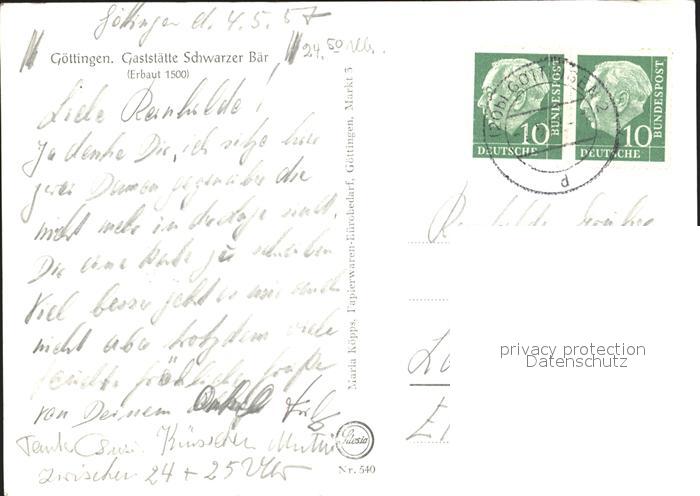 Göttingen d. 4.5.57
24.50 Uhr.
Göttingen. Gaststätte Schwarzer Bär
(Erbaut 1500)
Liebe Reinhilde!
Ja denke Dir, ich sitze hier
zwei Damen gegenüber die
nicht mehr in der Lage sind,
Dir eine Karte zu schreiben
Viel besser geht es mir auch
nicht aber trotzdem viele
fröhliche Grüße
von Deinem Onkel
Tante Susi. Küsschen Mutti
zwischen 24 + 25 Uhr
Maria Köpps, Papierwaren-Bürobedarf, Göttingen, Markt 3
Nr. 540
GÖTTINGEN 2
d
10
DEUTSCHE
BUNDESPOST
10
DEUTSCHE
BUNDESPOST
privacy protection
Datenschutz